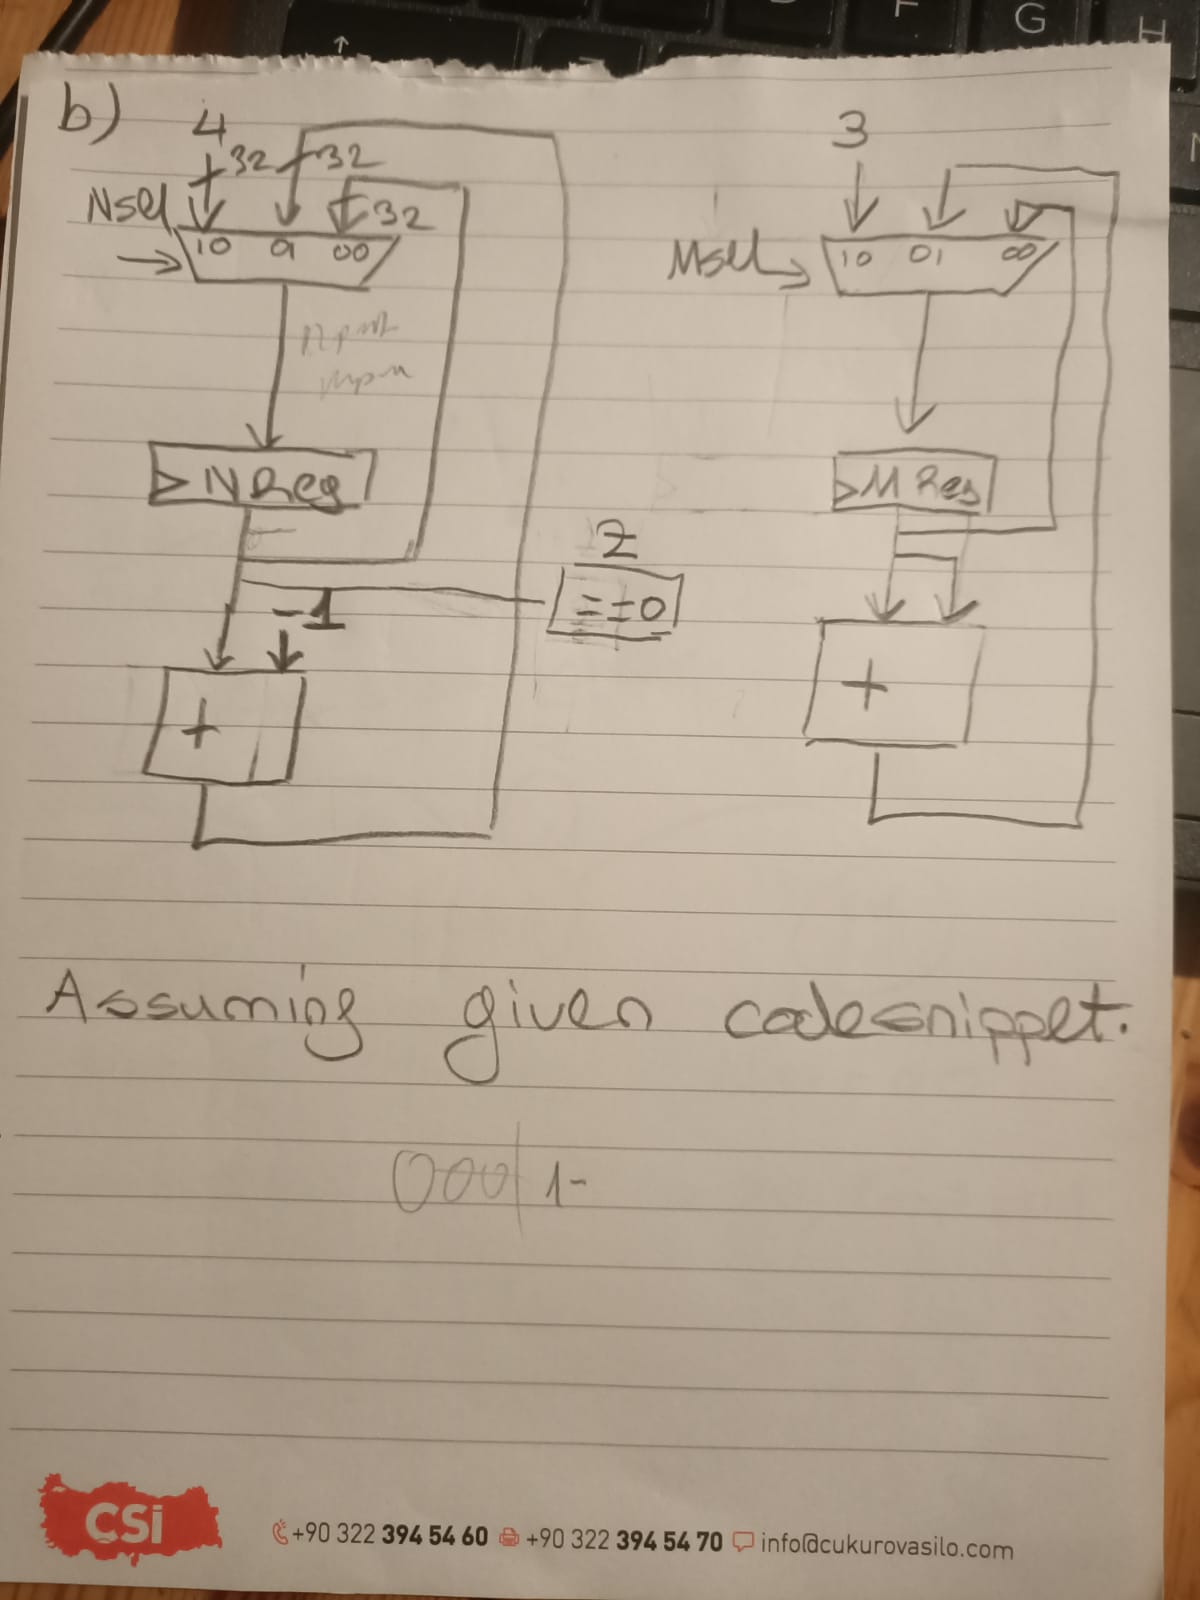 b) 4 3
32 32
Nsel 32
10 01 00
Msel 10 01 00
> N Reg
> M Reg
Z
-1
==0
+
+
Assuming given codesnippet.
000 1-
CSi
+90 322 394 54 60 +90 322 394 54 70 info@cukurovasilo.com
G
H